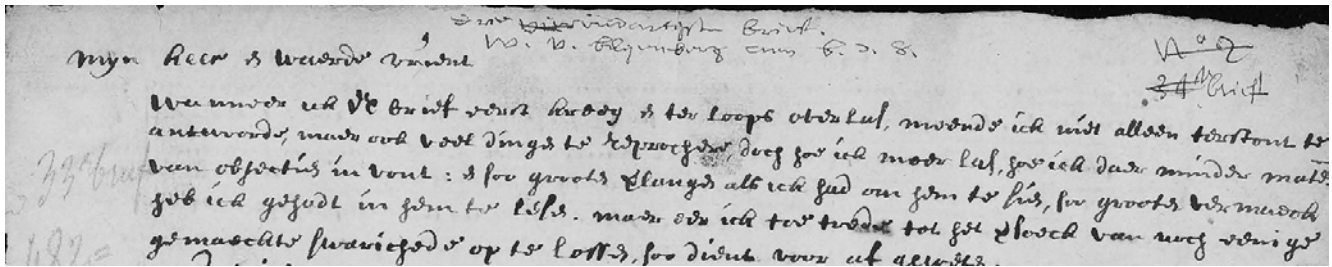 brief.
W. v. Blyenberg aan B. d. S.
No 2
34 brief
Myn heer & waerde vrient
wanneer ick Ue brief eerst kreeg & ter loops overlas, meende ick niet alleen terstont te
antworde, maer ook veel dinge te reprochere doch hoe ick meer las, hoe ick daer minder mate
van objectie in vont: & soo groote verlange als ick had om hem te sien, soo groote vermaeck
heb ick gehadt in hem te lese. maer eer ick toe trede tot het versoeck van noch eenige
gemaeckte swarichede op te losse, soo dient voor af gewete
33e brief